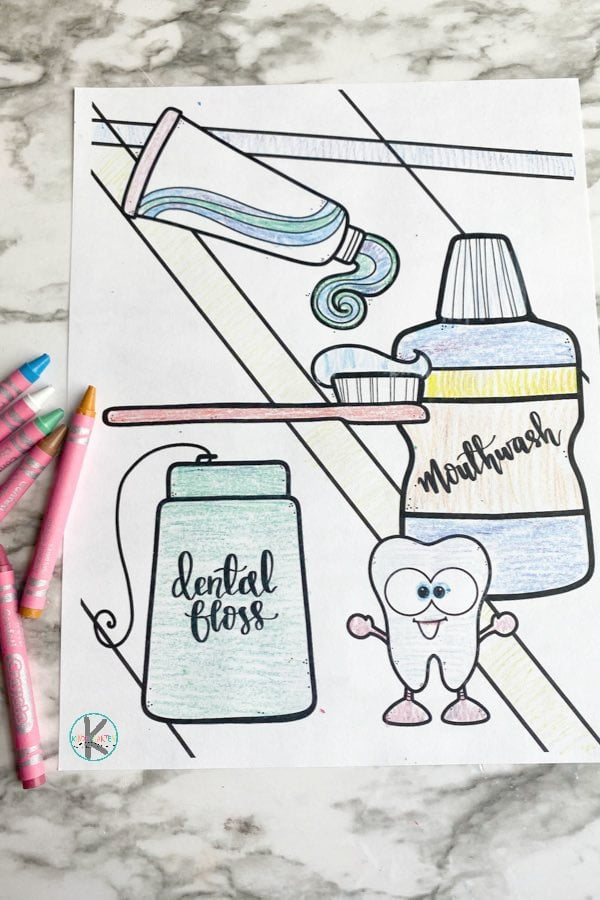 mouthwash
dental
floss
K